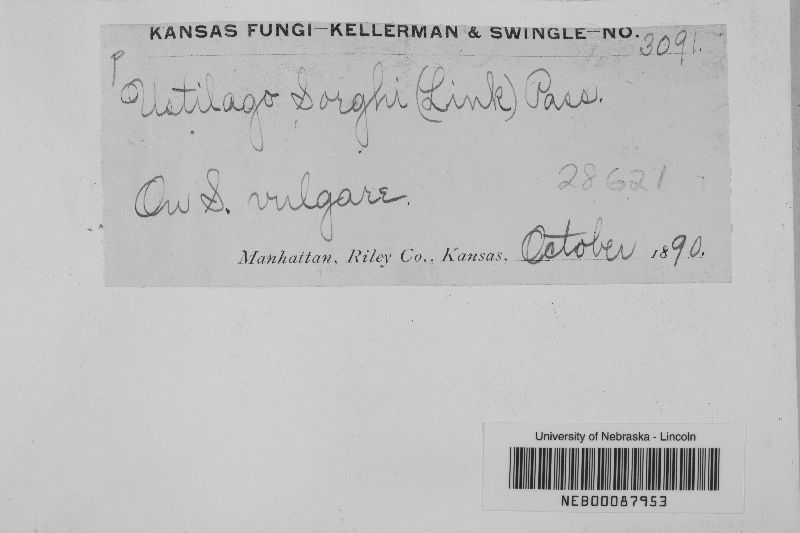 KANSAS FUNGI—KELLERMAN & SWINGLE—NO. 3091.
P
Ustilago Sorghi (Link) Pass.
28621
On S. vulgare.
Manhattan, Riley Co., Kansas, October 1890.
University of Nebraska - Lincoln
NEB00087953